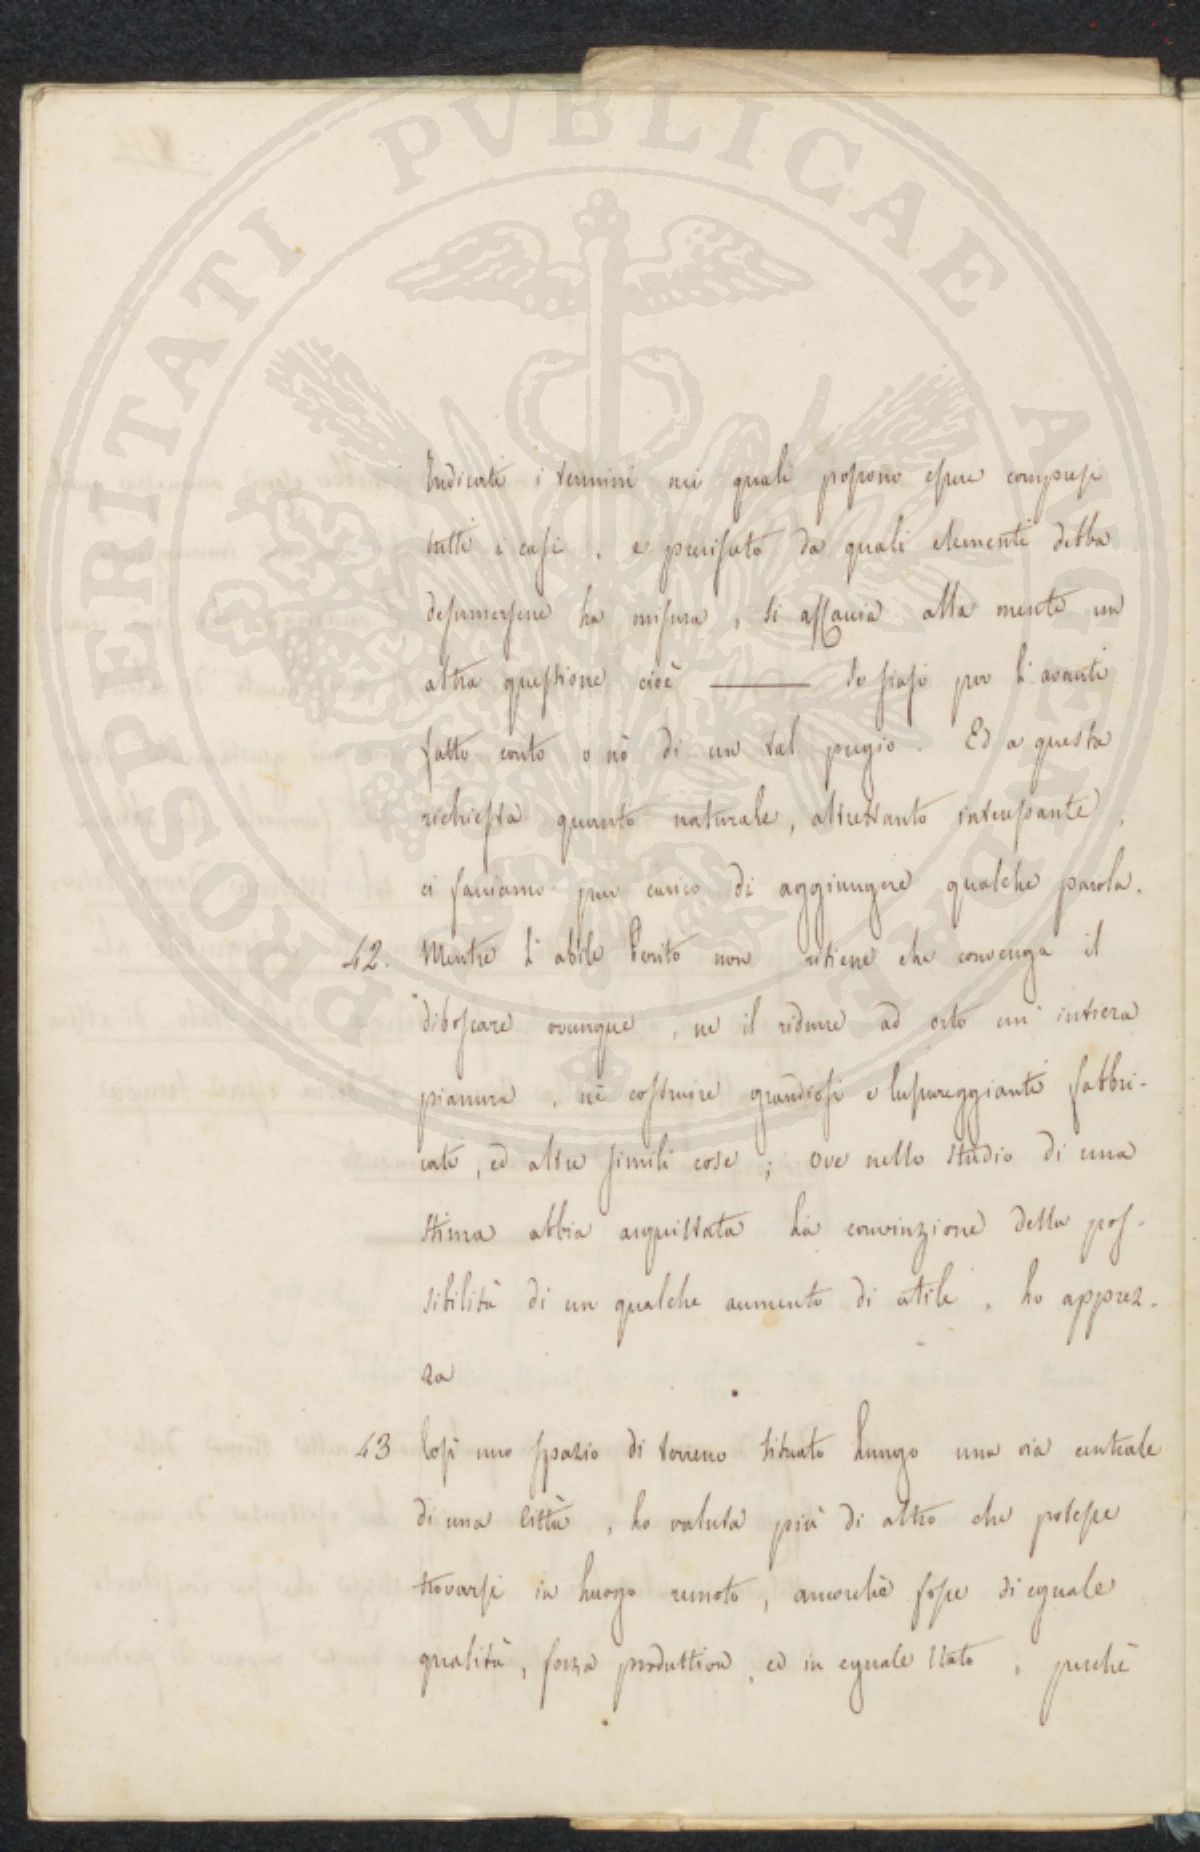 PROSPERITATI PUBLICAE AUGENDAE
Indicati i termini nei quali possono essere compresi
tutti i casi, e precisato da quali elementi debba
desumersene la misura, si affaccia alla mente un
altra questione cioè ——— se siasi per l'avanti
fatto conto o nò di un tal pregio. Ed a questa
richiesta quanto naturale, altrettanto interessante,
ci facciamo pur carico di aggiungere qualche parola.
42. Mentre l'abile Perito non ritiene che convenga il
diboscare ovunque, ne il ridurre ad orto un'intiera
pianura, nè costruire grandiosi e lussureggianti fabbri-
cati, ed altre simili cose; ove nello studio di una
stima abbia acquistata la convinzione della pos-
sibilità di un qualche aumento di utile, lo apprez-
za
43 Così uno spazio di terreno situato lungo una via centrale
di una Città, lo valuta più di altro che potesse
trovarsi in luogo remoto, ancorchè fosse di eguale
qualità, forza produttiva, ed in eguale stato, perchè